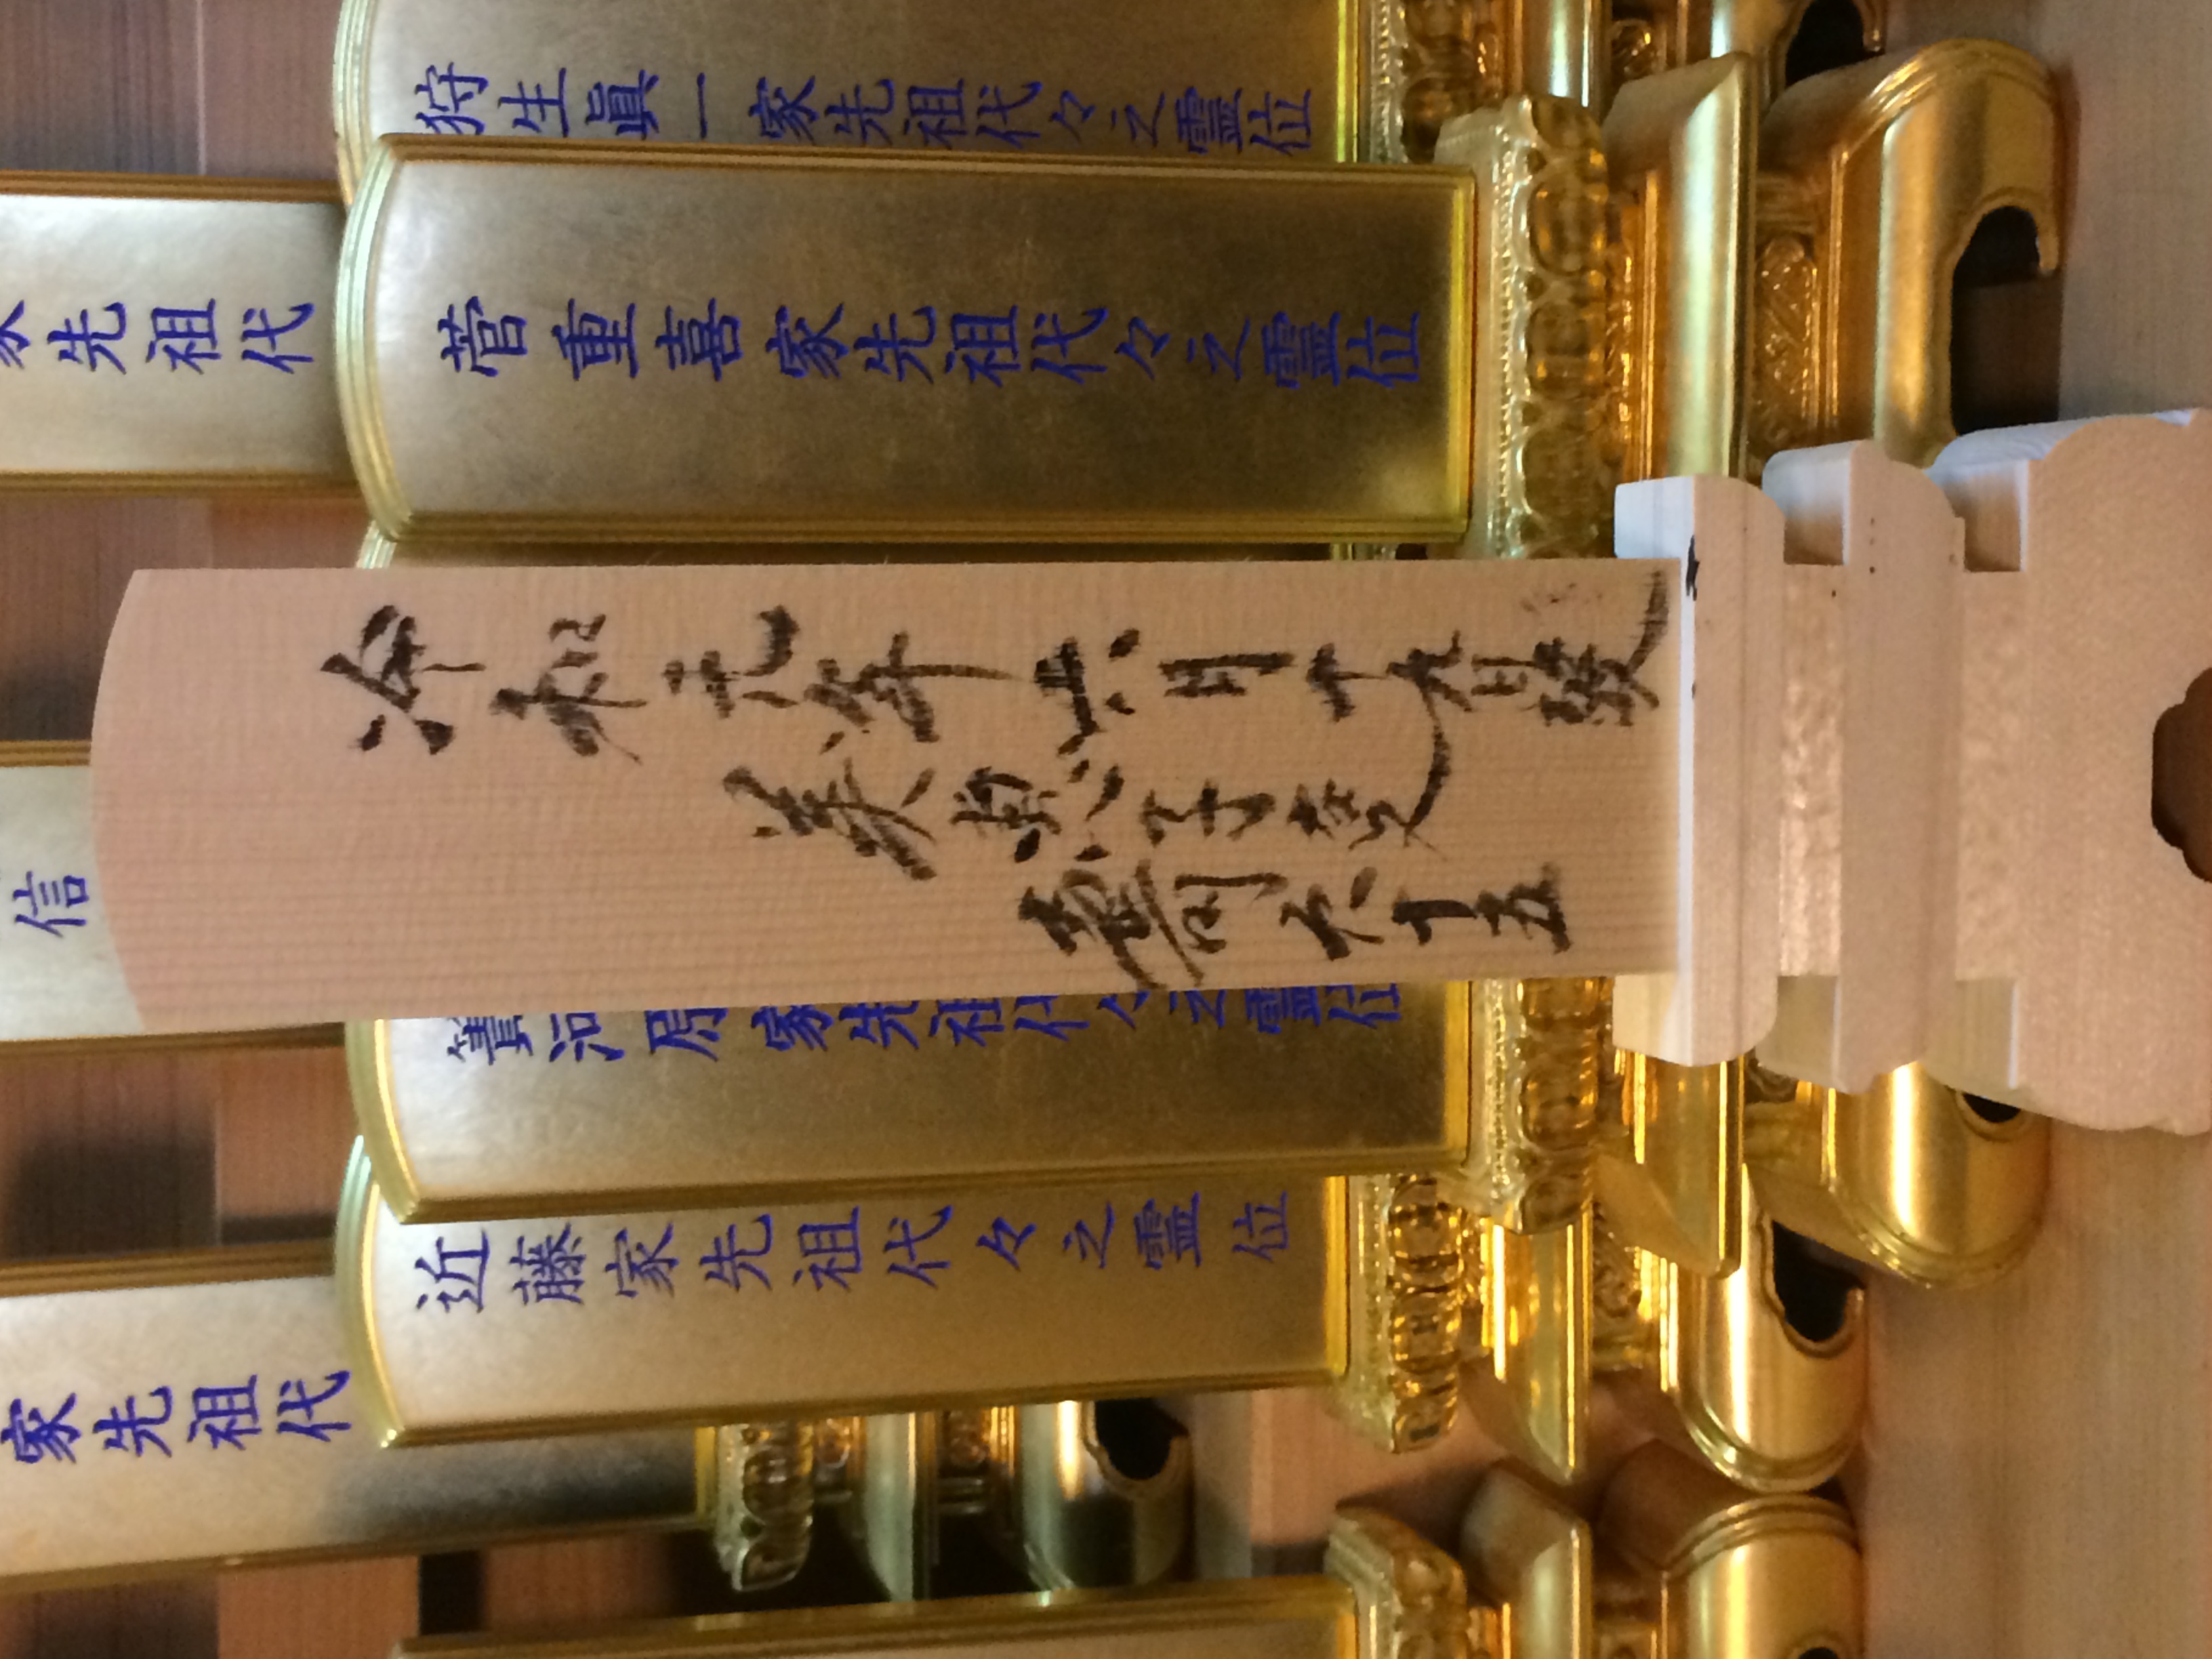 狩生眞一家先祖代々之霊位
家先祖代
菅重喜家先祖代々之霊位
令和元年六月十九日
子
六十五
信
河原家先祖代々之霊位
近藤家先祖代々之霊位
家先祖代